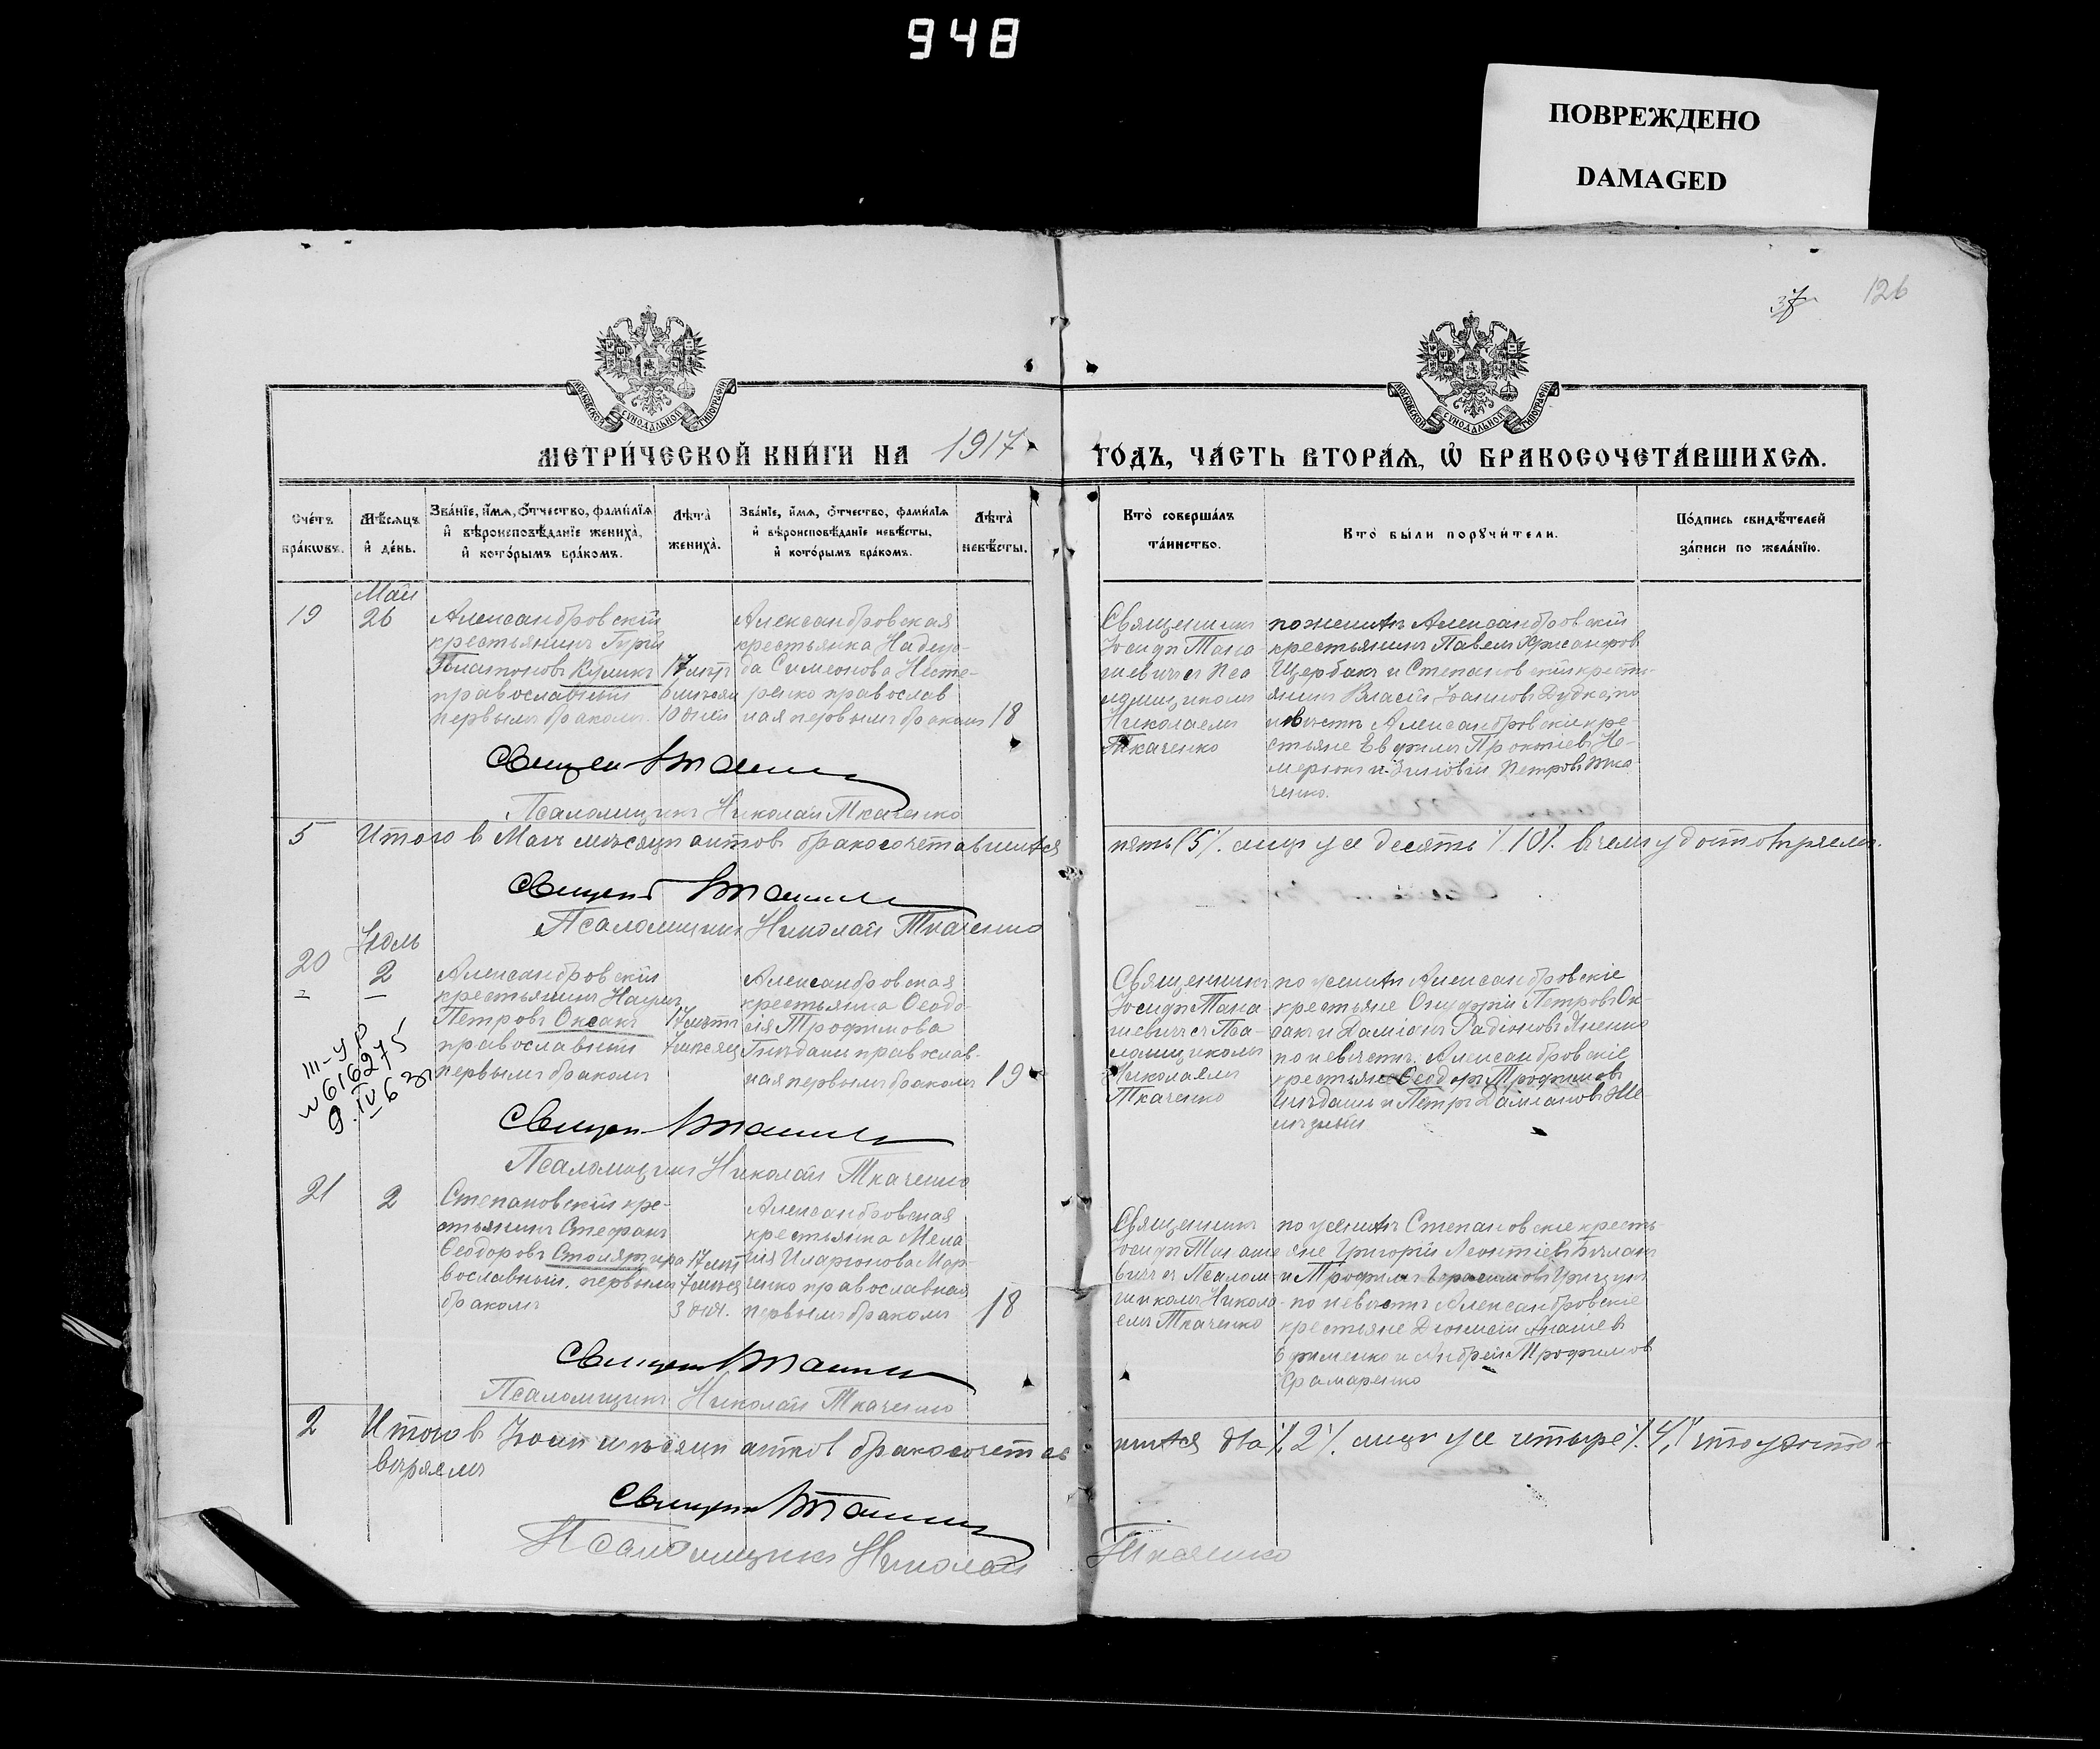 948
ПОВРЕЖДЕНО
DAMAGED
126
МОСКОВСКОЙ СѴНОДАЛЬНОЙ ТИПОГРАФІИ
МОСКОВСКОЙ СѴНОДАЛЬНОЙ ТИПОГРАФІИ
МЕТРИ́ЧЕСКОЙ КНИ́ГИ НА 1917
ГО́ДЪ, ЧА́СТЬ ВТОРА́Ѧ, Ѡ҆ БРАКОСОЧЕТА́ВШИХСѦ.
Сче́тъ бра́кѡвъ.
Мѣ́сяцъ и҆ де́нь.
Зва́нїе, и҆́мѧ, ѻ҆́тчество, фами́лїѧ и҆ вѣроисповѣ́данїе жениха̀, и҆ кото́рымъ бра́комъ.
Лѣта̀ жениха̀.
Зва́нїе, и҆́мѧ, ѻ҆́тчество, фами́лїѧ и҆ вѣроисповѣ́данїе невѣ́сты, и҆ кото́рымъ бра́комъ.
Лѣта̀ невѣ́сты.
Кто̀ соверша́лъ та́инство.
Кто̀ бы́ли порꙋчи́тели.
По́дпись свидѣ́телей за́писи по жела́нїю.
Май
19
26
Александровскій
крестьянинъ Гурій
Платоновъ Куликъ
православный
первымъ бракомъ.
17 лѣтъ
6 мѣсяц
10 дней
Александровская
крестьянка Надеж-
да Симеонова Несте-
ренко православ
ная первымъ бракомъ
18
Священникъ
Іосифъ Тана-
шевичъ с Пса
ломщикомъ
Николаемъ
Ткаченко
по женихѣ Александровскій
крестьянинъ Павелъ Хрисанфов
Щербакъ и Степановскій кресть-
янинъ Власій Іоанновъ Дудка; по
невѣстѣ Александровскіе кре-
стьяне Евфимъ Прокопіевъ Не-
мерюкъ и Зиновій Петровъ Тка
ченко.
Священ
Псаломщикъ Николай Ткаченко
5
Итого в Маѣ мѣсяцѣ актов бракосочетавшихся
пять (5). лицъ же десять (10). в чемъ удостовѣряемъ.
Священ
Псаломщикъ Николай Ткаченко
Іюль
20
2
Александровскій
крестьянинъ Наумъ
Петровъ Оксакъ
православный
первымъ бракомъ
17 лѣтъ
7 мѣсяц
Александровская
крестьянка Ѳеодо-
сія Трофимова
Гнѣдашъ православ-
ная первымъ бракомъ
19
Священникъ
Іосифъ Тана-
шевичъ с Пса-
ломщикомъ
Николаемъ
Ткаченко
по женихѣ Александровскіе
крестьяне Онуфрій Петровъ Ок-
сакъ и Даміанъ Радіоновъ Яненко
по невѣстѣ: Александровскіе
крестьяне Ѳеодоръ Трофимовъ
Гнѣдашъ и Петръ Даміановъ Же-
III-УР
616275
9.IV 63
Священ
Псаломщикъ Николай Ткаченко
21
2
Степановскій кре-
стьянинъ Стефанъ
Ѳеодоровъ Столяр пра
вославный, первымъ
бракомъ
17 лѣт
7 мѣся
3 дня.
Александровская
крестьянка Мела
нія Иларіонова Мар-
ченко православная
первымъ бракомъ
18
Священникъ
Іосифъ Танаше
вичъ с Псалом-
щикомъ Никола-
емъ Ткаченко
по женихѣ Степановскіе кресть-
яне Григорій Леонтіевъ
и Трофимъ Герасимовъ Грицун
по невѣстѣ Александровскіе
крестьяне Діонисій Ананіев
Ефименко и Андрей Трофимов
Крамаренко
Священ
Псаломщикъ Николай Ткаченко
2
Итого в мѣсяцѣ актов бракосочетав
шихся два (2). лицъ же четыре (4) что удосто-
вѣряемъ
Священ
Псаломщикъ Николай Ткаченко